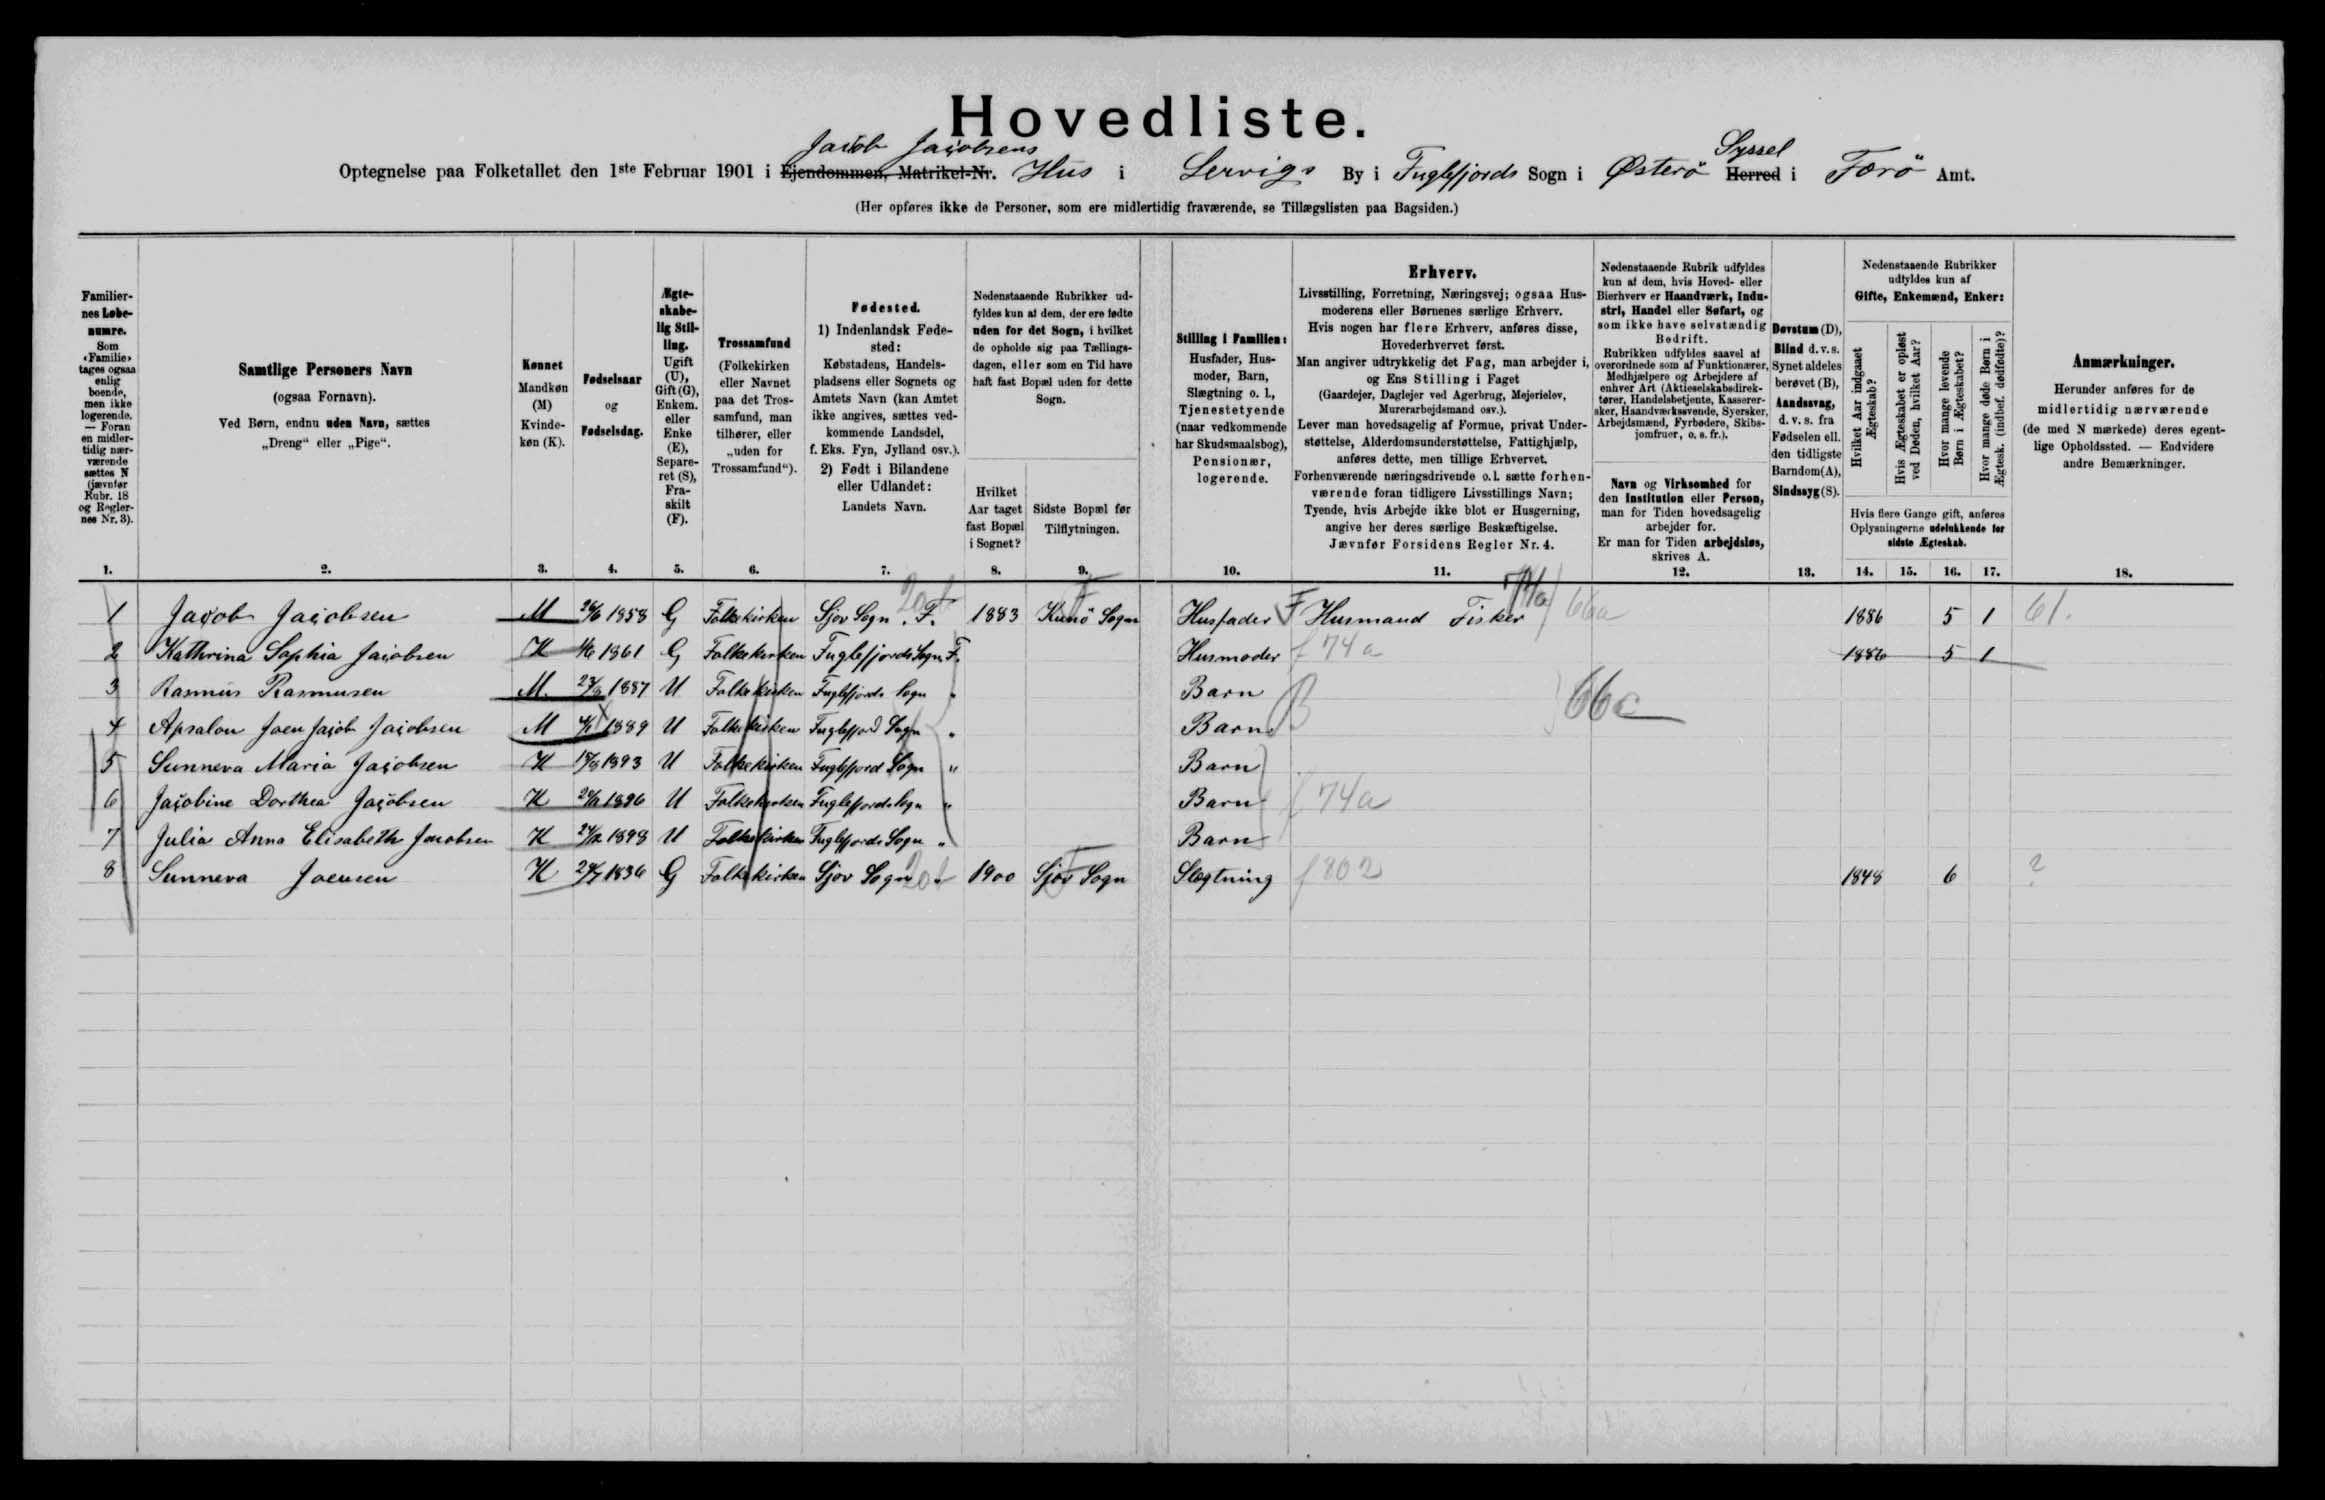 Hovedliste.
Jacob Jacobsens Syssel
Optegnelse paa Folketallet den 1ste Februar 1901 i Ejendommen, Matrikel-Nr. Hus i Lervigs By i Fuglefjords Sogn i Østerö Herred i Færö Amt.
(Her opføres ikke de Personer, som ere midlertidig fraværende, se Tillægslisten paa Bagsiden.)
Familier-
nes Løbe-
numre.
Som
«Familie»
tages ogsaa
enlig
boende,
men ikke
logerende.
— Foran
en midler-
tidig nær-
værende
sættes N
(jævnfør
Rubr. 18
og Regler-
nes Nr. 3).
1.
Samtlige Personers Navn
(ogsaa Fornavn).
Ved Børn, endnu uden Navn, sættes
„Dreng“ eller „Pige“.
2.
Kønnet
Mandkøn
(M)
Kvinde-
køn (K).
3.
Fødselsaar
og
Fødselsdag.
4.
Ægte-
skabe-
lig Stil-
ling.
Ugift
(U),
Gift (G),
Enkem.
eller
Enke
(E),
Separe-
ret (S),
Fra-
skilt
(F).
5.
Trossamfund
(Folkekirken
eller Navnet
paa det Tros-
samfund, man
tilhører, eller
„uden for
Trossamfund“).
6.
Fødested.
1) Indenlandsk Føde-
sted:
Købstadens, Handels-
pladsens eller Sognets og
Amtets Navn (kan Amtet
ikke angives, sættes ved-
kommende Landsdel,
f. Eks. Fyn, Jylland osv.).
2) Født i Bilandene
eller Udlandet:
Landets Navn.
7.
Nedenstaaende Rubrikker ud-
fyldes kun af dem, der ere fødte
uden for det Sogn, i hvilket
de opholde sig paa Tællings-
dagen, eller som en Tid have
haft fast Bopæl uden for dette
Sogn.
Hvilket
Aar taget
fast Bopæl
i Sognet?
8.
Sidste Bopæl før
Tilflytningen.
9.
Stilling i Familien:
Husfader, Hus-
moder, Barn,
Slægtning o. l.,
Tjenestetyende
(naar vedkommende
har Skudsmaalsbog),
Pensionær,
logerende.
10.
Erhverv.
Livsstilling, Forretning, Næringsvej; ogsaa Hus-
moderens eller Børnenes særlige Erhverv.
Hvis nogen har flere Erhverv, anføres disse,
Hovederhvervet først.
Man angiver udtrykkelig det Fag, man arbejder i,
og Ens Stilling i Faget
(Gaardejer, Daglejer ved Agerbrug, Mejerielev,
Murerarbejdsmand osv.).
Lever man hovedsagelig af Formue, privat Under-
støttelse, Alderdomsunderstøttelse, Fattighjælp,
anføres dette, men tillige Erhvervet.
Forhenværende næringsdrivende o. l. sætte forhen-
værende foran tidligere Livsstillings Navn;
Tyende, hvis Arbejde ikke blot er Husgerning,
angive her deres særlige Beskæftigelse.
Jævnfør Forsidens Regler Nr. 4.
11.
Nedenstaaende Rubrik udfyldes
kun af dem, hvis Hoved- eller
Bierhverv er Haandværk, Indu-
stri, Handel eller Søfart, og
som ikke have selvstændig
Bedrift.
Rubrikken udfyldes saavel af
overordnede som af Funktionærer,
Medhjælpere og Arbejdere af
enhver Art (Aktieselskabsdirek-
tører, Handelsbetjente, Kasserer-
sker, Haandværkssvende, Syersker,
Arbejdsmænd, Fyrbødere, Skibs-
jomfruer, o. s. fr.).
Navn og Virksomhed for
den Institution eller Person,
man for Tiden hovedsagelig
arbejder for.
Er man for Tiden arbejdsløs,
skrives A.
12.
Døvstum (D),
Blind d. v. s.
Synet aldeles
berøvet (B),
Aandssvag,
d. v. s. fra
Fødselen ell.
den tidligste
Barndom (A),
Sindssyg (S).
13.
Nedenstaaende Rubrikker
udfyldes kun af
Gifte, Enkemænd, Enker:
Hvilket Aar indgaaet
Ægteskab?
Hvis Ægteskabet er opløst
ved Døden, hvilket Aar?
Hvor mange levende
Børn i Ægteskabet?
Hvor mange døde Børn i
Ægtesk. (indbef. dødfødte)?
Hvis flere Gange gift, anføres
Oplysningerne udelukkende for
sidste Ægteskab.
14. 15. 16. 17.
Anmærkninger.
Herunder anføres for de
midlertidig nærværende
(de med N mærkede) deres egent-
lige Opholdssted. — Endvidere
andre Bemærkninger.
18.
1 Jacob Jacobsen M 1858 G Folkekirken Sjov Sogn. F. 1883 Kunö Sogn Husfader F Husmand Fisker 74a 66a 1886 5 1 61.
2 Kathrina Sophia Jacobsen K 1861 G Folkekirken Fuglefjords Sogn F. Husmoder f 74a 1886 5 1
3 Rasmus Rasmusen M. 1887 U Folkekirken Fuglefjords Sogn „ Barn 66c
4 Apsalon Joen Jacob Jacobsen M 1889 U Folkekirken Fuglefjord Sogn „ Barn B
5 Sunneva Maria Jacobsen K 1893 U Folkekirken Fuglefjord Sogn „ Barn
6 Jacobine Dorthea Jacobsen K 1896 U Folkekirken Fuglefjords Sogn „ Barn f 74a
7 Julia Anna Elisabeth Jacobsen K 1898 U Folkekirken Fuglefjords Sogn „ Barn
8 Sunneva Joensen K 1836 G Folkekirken Sjov Sogn „ 1900 Sjov Sogn Slægtning f 802 1848 6 ?